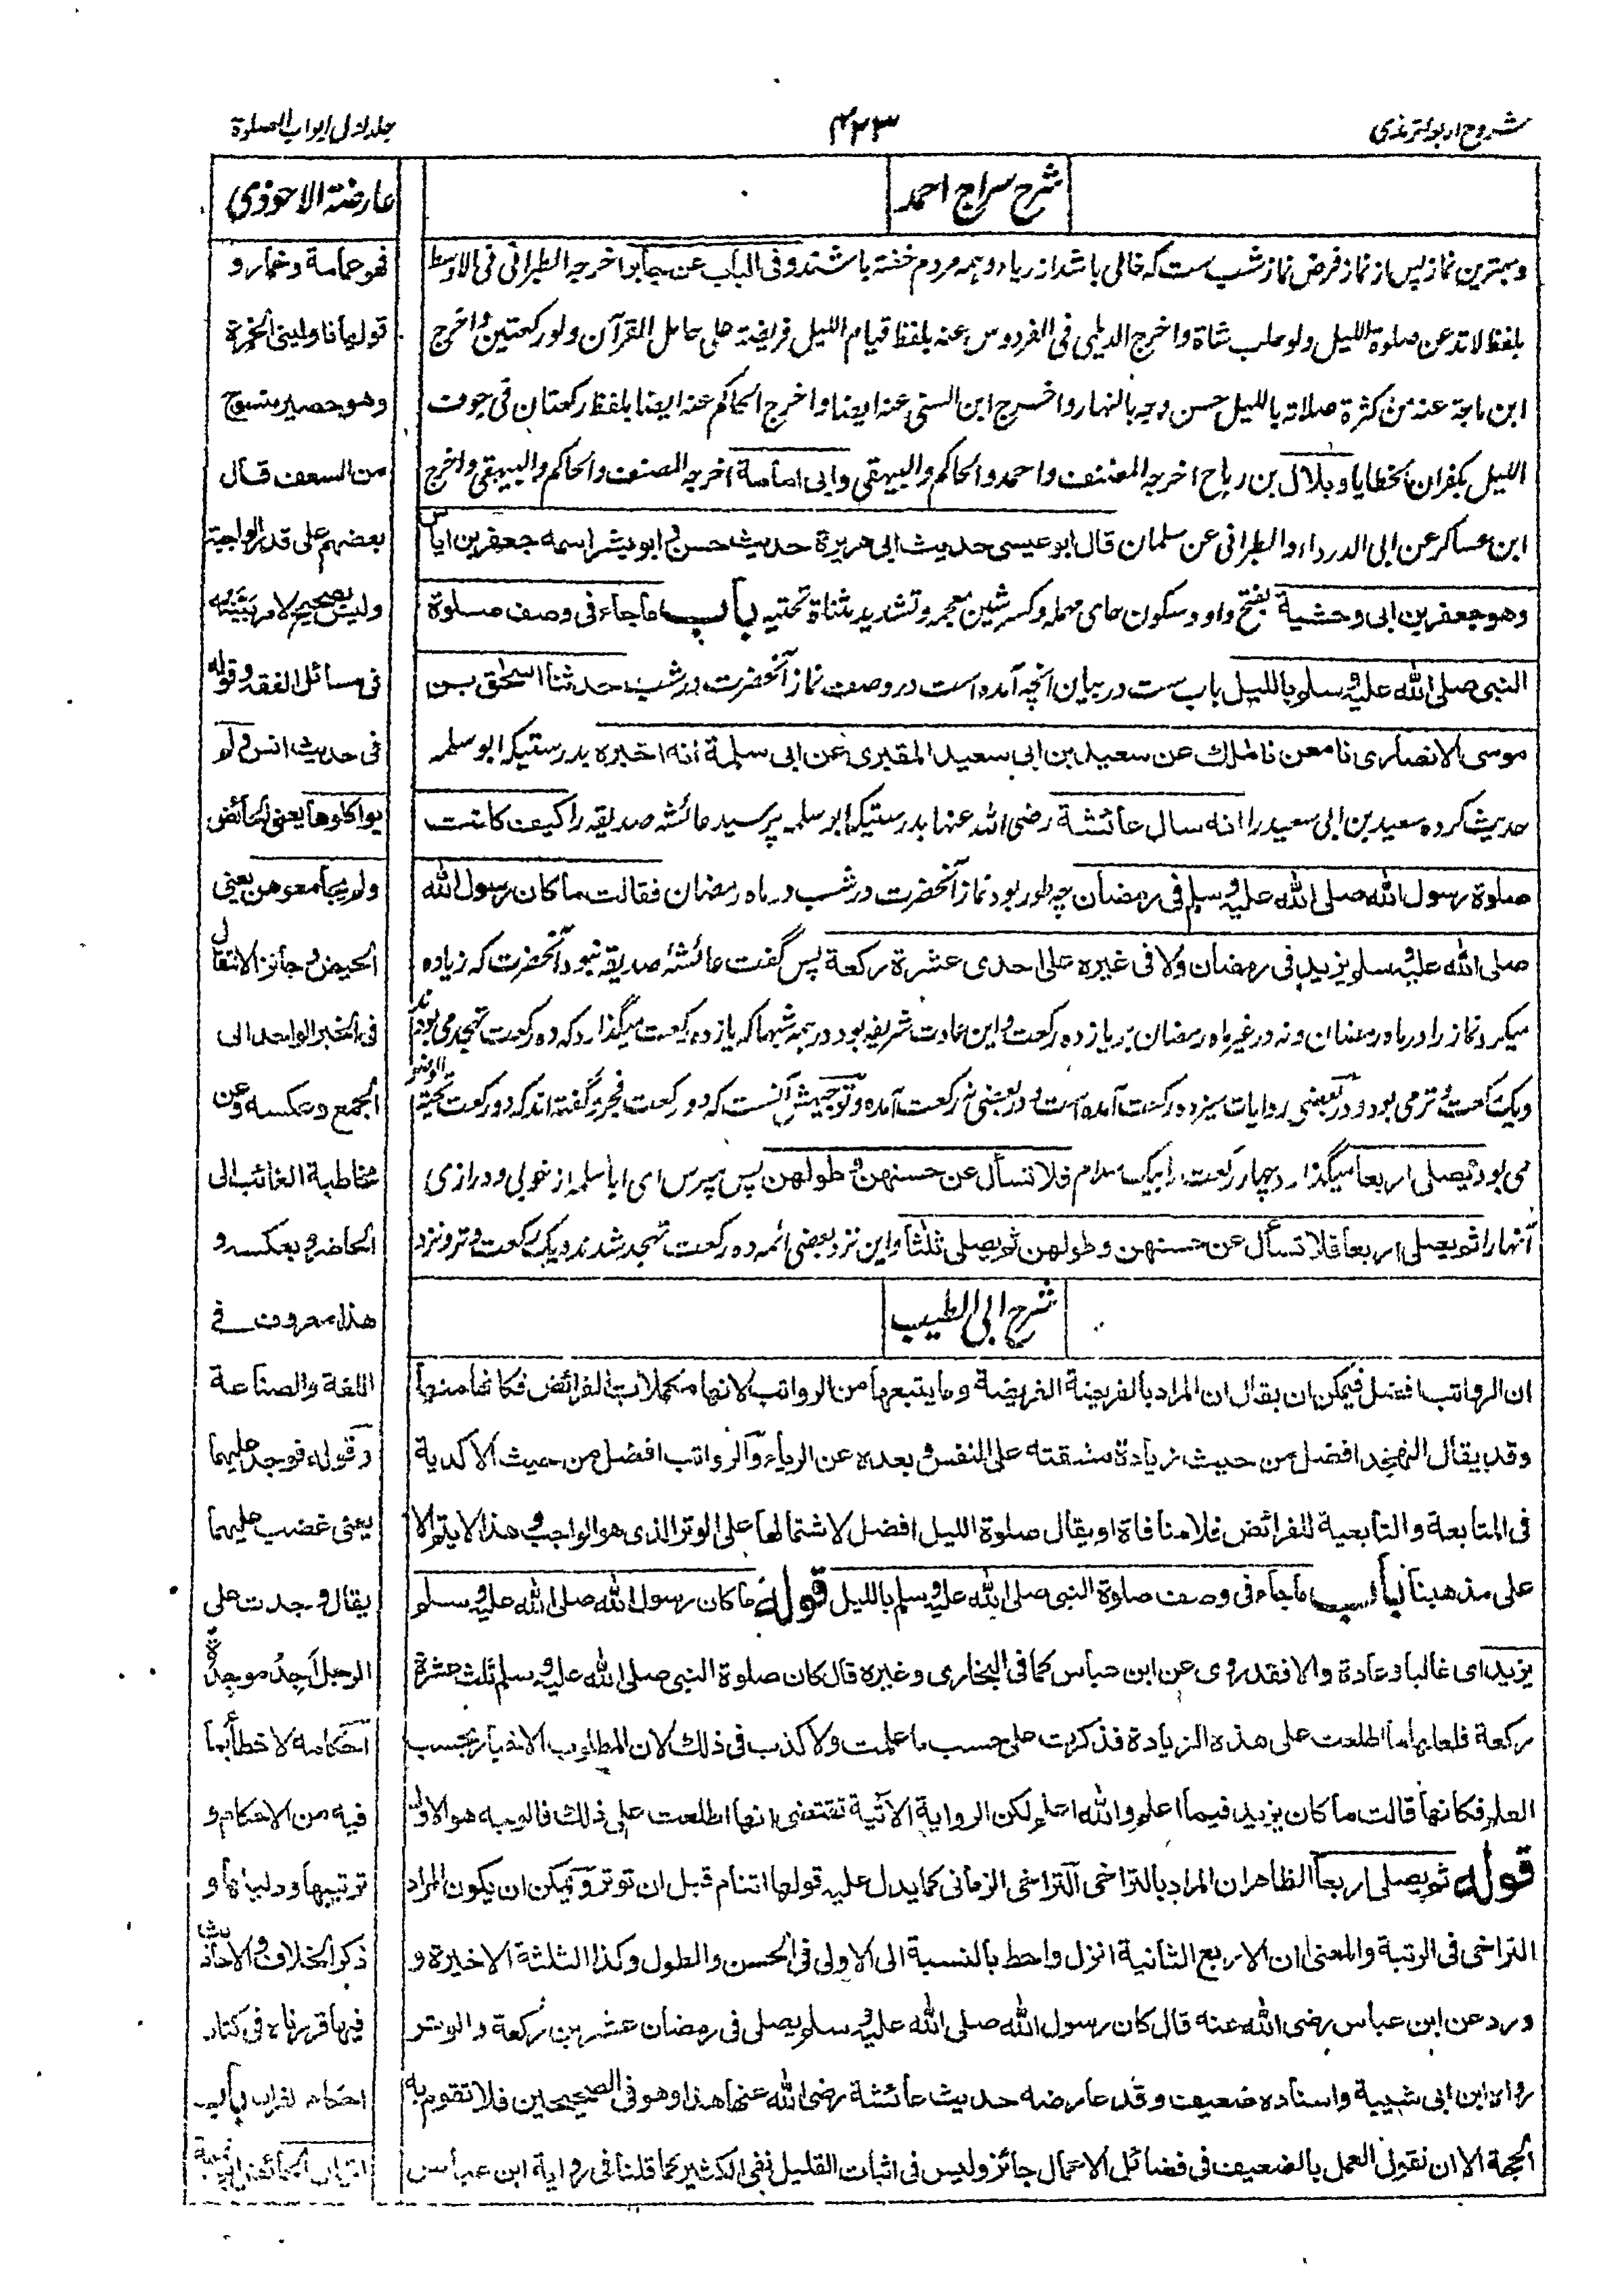 شروح اربعہ ترمذی
۴۲۳
جلد اول ابواب الصلوة
شرح سراج احمد
وبہترین نماز پس از نماز فرض نماز شب ست کہ خالی باشد از ریاء وہمہ مردم خفتہ باشند وفی الباب عن جابر اخرجہ الطبرانی فی الاوسط
بلفظ لا تدعن صلوة اللیل ولو حلب شاة واخرج الدیلمی فی الفردوس عنہ بلفظ قیام اللیل فریضة علی حامل القرآن ولو رکعتین واخرج
ابن ماجة عنہ من کثرة صلاتہ باللیل حسن وجہ بالنہار واخرج ابن السنی عنہ ایضا واخرج الحاکم عنہ ایضا بلفظ رکعتان فی جوف
اللیل یکفران الخطایا وبلال بن رباح اخرجہ المصنف واحمد والحاکم والبیہقی وابی امامة اخرجہ المصنف والحاکم والبیہقی واخرج
ابن عساکر عن ابی الدرداء والطبرانی عن سلمان قال ابو عیسی حدیث ابی ہریرة حدیث حسن و ابو بشر اسمہ جعفر بن ایاس
وھو جعفر بن ابی وحشیة بفتح واو وسکون حای مہملہ وکسر شین معجمہ وتشدید مثناة تحتیہ باب ماجاء فی وصف صلوة
النبی صلی اللہ علیہ وسلم باللیل باب ست در بیان آنچہ آمدہ است در وصف نماز آنحضرت در شب حدثنا اسحق بن
موسی الانصاری نا معن نا مالک عن سعید بن ابی سعید المقبری عن ابی سلمة انہ اخبرہ بدرستیکہ ابو سلمہ
حدیث کردہ سعید بن ابی سعید را انہ سال عائشة رضی اللہ عنہا بدرستیکہ ابو سلمہ پرسید عائشہ صدیقہ را کیف کانت
صلوة رسول اللہ صلی اللہ علیہ وسلم فی رمضان چہ طور بود نماز آنحضرت در شب در ماہ رمضان فقالت ما کان رسول اللہ
صلی اللہ علیہ وسلم یزید فی رمضان ولا فی غیرہ علی احدی عشرة رکعة پس گفت عائشہ صدیقہ نبود آنحضرت کہ زیادہ
میکرد نماز را در ماہ رمضان و نہ در غیر ماہ رمضان بر یازدہ رکعت و این عادت شریفہ بود در ہمہ شبہا کہ یازدہ رکعت میگذارد کہ دہ رکعت تہجد می بودند
ویک رکعت وتر می بود و در بعضی روایات سیزدہ رکعت آمدہ است و در بعضی نہ رکعت آمدہ وتوجیہش آنست کہ دو رکعت فجر و گفتہ اند کہ دو رکعت تحیة الوضو
می بود یصلی اربعا میگذارد چہار رکعت را بیک سلام فلا تسأل عن حسنهن وطولهن پس مپرس ای ابا سلمہ از خوبی و درازی
آنہا را ثم یصلی اربعا فلا تسأل عن حسنهن وطولهن ثم یصلی ثلثا واین نزد بعضی ائمہ دہ رکعت تہجد شدند ویک رکعت وتر ونزد
شرح ابی الطیب
ان الرواتب افضل فیمکن ان یقال ان المراد بالفریضة الفریضة وما یتبعها من الرواتب لانها مکملات الفرائض فکانها منها
وقد یقال التهجد افضل من حیث زیادة مشقته علی النفس و بعده عن الریاء والرواتب افضل من حیث الاکدیة
فی المتابعة والتابعیة للفرائض فلا منافاة او یقال صلوة اللیل افضل لاشتمالها علی الوتر الذی هو الواجب و هذا لا یتم الا
علی مذهبنا باب ماجاء فی وصف صلوة النبی صلی اللہ علیہ وسلم باللیل قوله ما کان رسول اللہ صلی اللہ علیہ وسلم
یزید ای غالبا وعادة والا فقد روی عن ابن عباس کما فی البخاری وغیره قال کان صلوة النبی صلی اللہ علیہ وسلم ثلث عشرة
رکعة فلعلها ما اطلعت علی هذه الزیادة فذکرت علی حسب ما علمت ولا کذب فی ذلک لان المطلوب الاخبار بحسب
العلم فکانها قالت ما کان یزید فیما اعلم واللہ اعلم لکن الروایة الآتیة تقتضی انها اطلعت علی ذلک فالوجه هو الاول
قوله ثم یصلی اربعا الظاهر ان المراد بالتراخی التراخی الزمانی کما یدل علیه قولها اتنام قبل ان توتر ویمکن ان یکون المراد
التراخی فی الرتبة والمعنی ان الاربع الثانیة انزل واحط بالنسبة الی الاولی فی الحسن والطول وکذا الثلثة الاخیرة و
ورد عن ابن عباس رضی اللہ عنه قال کان رسول اللہ صلی اللہ علیہ وسلم یصلی فی رمضان عشرین رکعة والوتر
رواه ابن ابی شیبة واسناده ضعیف وقد عارضه حدیث عائشة رضی اللہ عنها هذا وهو فی الصحیحین فلا تقوم به
الحجة الا ان نقول العمل بالضعیف فی فضائل الاعمال جائز ولیس فی اثبات القلیل نفی الکثیر کما قلنا فی روایة ابن عباس
عارضة الاحوذی
فهو عمامة وخمار و
قولها ناولینی الخمرة
وهو حصیر منسوج
من السعف قال
بعضهم علی قدر الوجه
ولیس بصحیح لامر بینته
فی مسائل الفقه وقوله
فی حدیث انس ولم
یواکلوها یعنی الحائض
ولم یجامعوهن یعنی
الحیض و جائز الانتقال
فی الخبر الواحد الی
الجمع وعکسه وعن
مخاطبة الغائب الی
الحاضر و بعکسه و
هذا معروف فی
اللغة والصناعة
وقوله فوجد علیهما
یعنی غضب علیهما
یقال وجدت علی
الرجل أجدُ موجدة
احکامه لا خطأ بها
فیه من الاحکام و
ترتیبها ودلیلها و
ذکر الخلاف والاحادیث
فیها قررناه فی کتاب
احکام القرآن باب